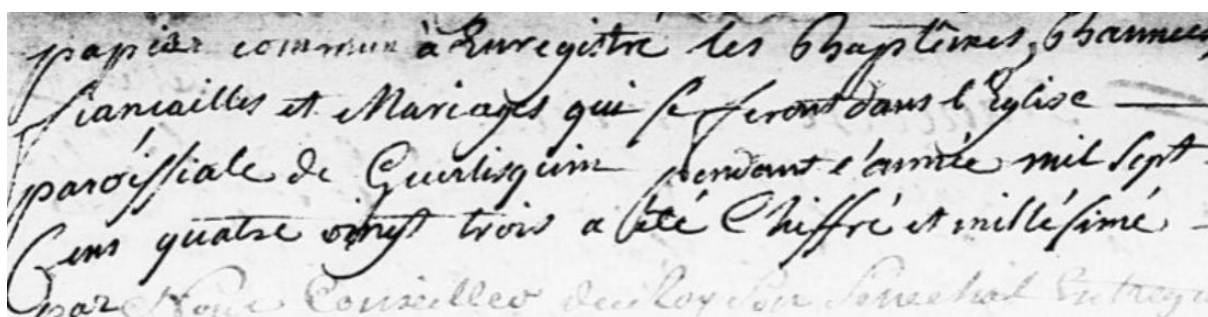 papier commun à Enregistré les Baptêmes, bannies,
fiancailles et Mariages qui se feront dans l'Eglise
paroissiale de Guerlisquin pendant l'année mil sept
Cens quatre vingt trois a été Chiffré et millésimé
par Nous Conseiller du Roy Son Senechal